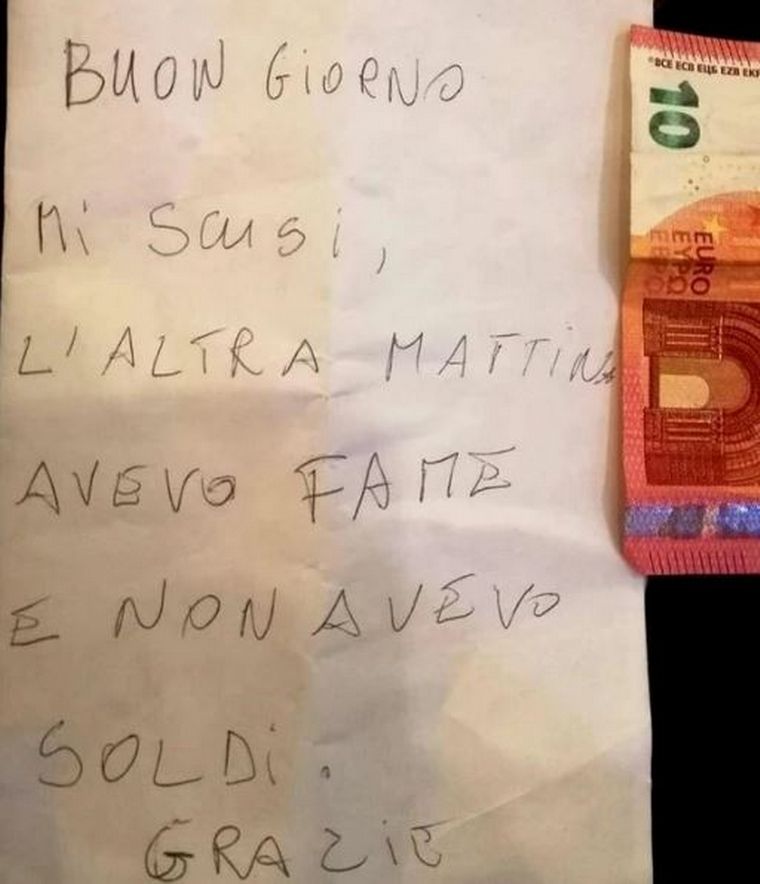 BUON GiORNO
Mi Scusi,
L'ALTRA MATTiNA
AVEVO FAME
E NON AVEVO
SOLDi.
GRAZiE
©BCE ECB ЕЦБ EZB
10
EURO
ΕΥΡΩ
ЕВРО